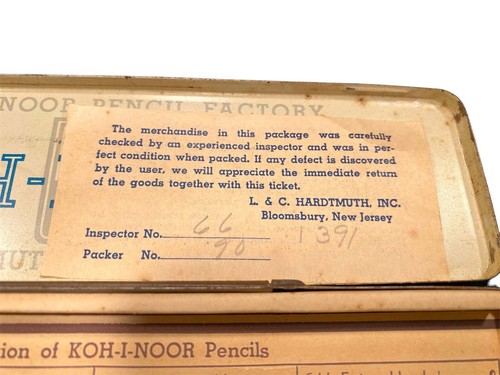 -NOOR PENCIL FACTORY
The merchandise in this package was carefully
checked by an experienced inspector and was in per-
fect condition when packed. If any defect is discovered
by the user, we will appreciate the immediate return
of the goods together with this ticket.
L. & C. HARDTMUTH, INC.
Bloomsbury, New Jersey
Inspector No. 66 1391
Packer No. 90
H-I
MUT
ion of KOH-I-NOOR Pencils